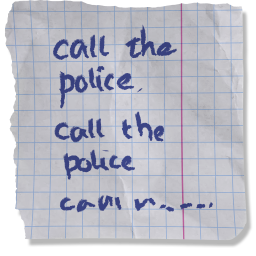 call the
police.
call the
police